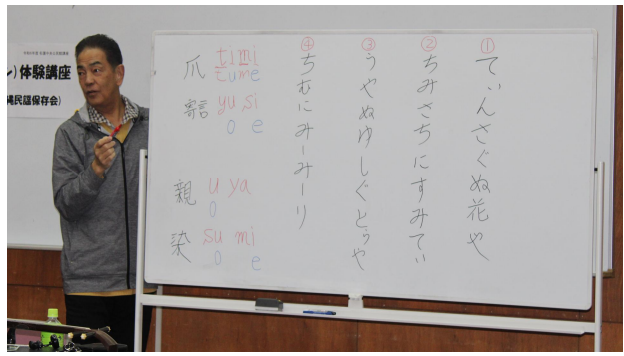 ン）体験講座
縄民謡保存会）
① てぃんさぐぬ花や
② ちみさちにすみてぃ
③ うやぬゆしぐとぅや
④ ちむにみーみーり
爪 timi
tume
yu si
o e
親 u ya
o
染 su mi
o e